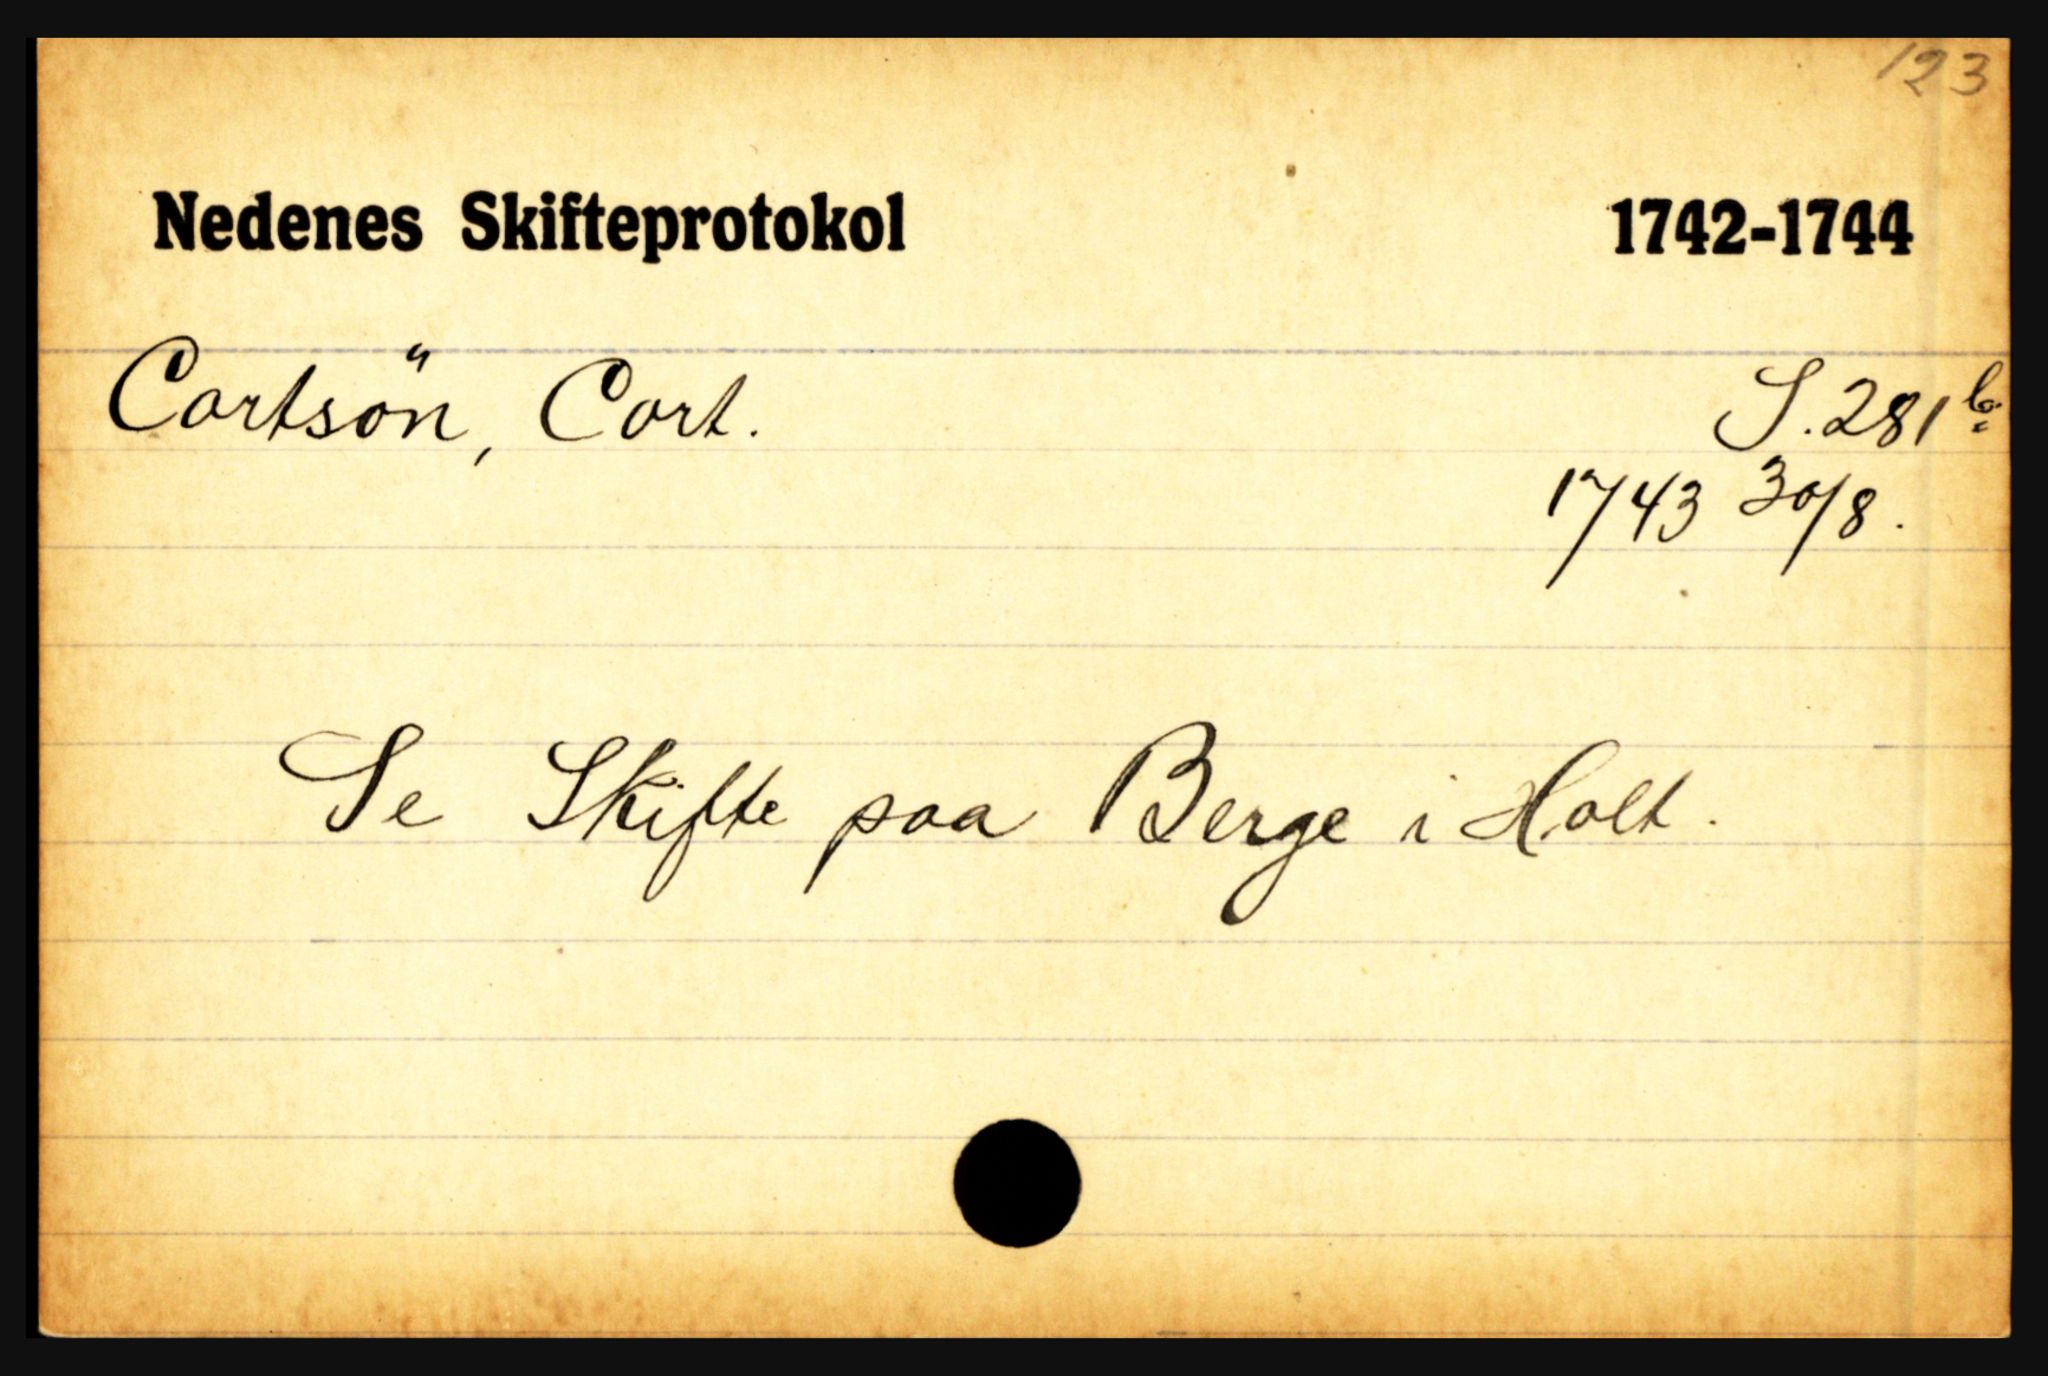 123
Nedenes Skifteprotokol 1742-1744
Cortsön, Cort. S. 281 b.
1743 30/8.
Se Skifte paa Berge i Holt.